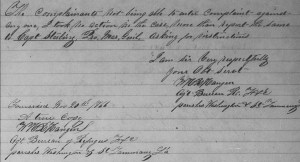 The Complainants not being able to make Complaint against
any one I took no action in the case more than report the same
to Capt Sterling Pro. Mar. Genl. asking for instructions
I am Sir Very respectfully
your Obt Servt
W H R Hangen
Agt Bureau R. F. &c
parishes Washington & St Tammany
1866
A true Copy
W H R Hangen
Agt Bureau of Refugees F &c
parishes Washington & St Tammany La